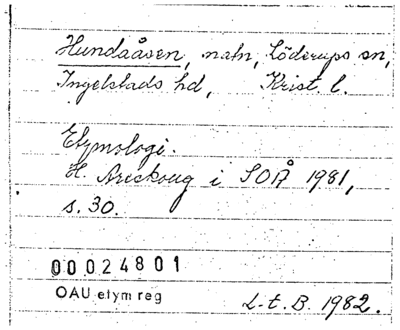 Hundaåsen, natn, Löderups sn,
Ingelstads hd, Krist. l.
Etymologi.
H. Areskoug i SOÅ 1981,
s. 30.
00024801
OAU etym reg
L-t. B. 1982.